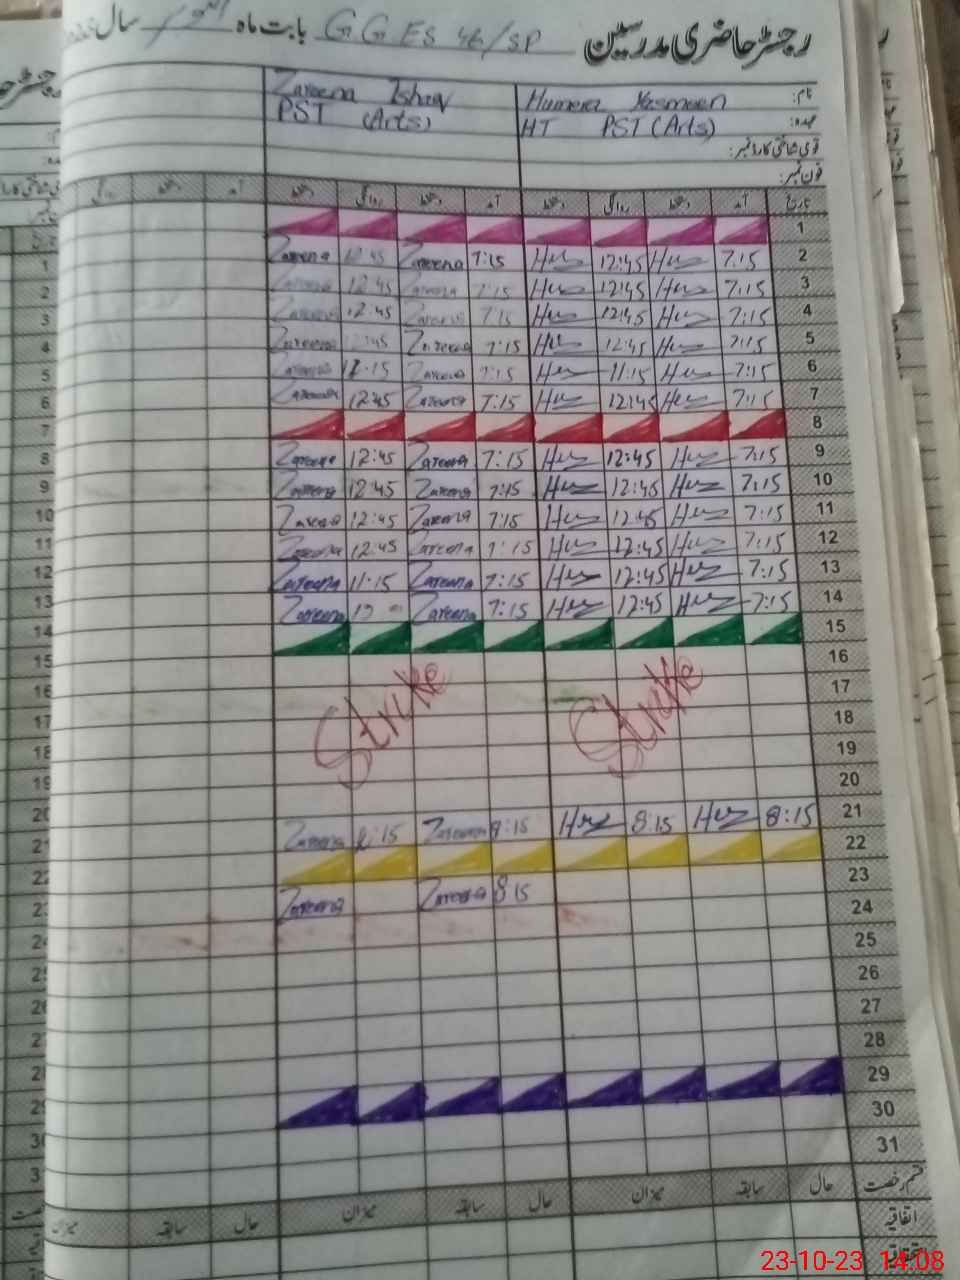 رجسٹر حاضری مدرسین GGES 46/SP بابت ماہ اکتوبر سال
نام: Humera Yasmeen Zareena Ishaq
عہدہ: HT PST (Arts) PST (Arts)
قومی شناختی کارڈ نمبر:
فون نمبر:
تاریخ آمد دستخط روانگی دستخط آمد دستخط روانگی دستخط آمد دستخط روانگی
1
2 7:15 12:45 7:15 Zareena 12:45 Zareena
3 7:15 12:45 7:15 Zareena 12:45 Zareena
4 7:15 12:45 7:15 Zareena 12:45 Zareena
5 7:15 12:45 7:15 Zareena 12:45 Zareena
6 7:15 11:15 7:15 Zareena 11:15 Zareena
7 7:15 12:45 7:15 Zareena 12:45 Zareena
8
9 7:15 12:45 7:15 Zareena 12:45 Zareena
10 7:15 12:45 7:15 Zareena 12:45 Zareena
11 7:15 12:45 7:15 Zareena 12:45 Zareena
12 7:15 12:45 7:15 Zareena 12:45 Zareena
13 7:15 12:45 7:15 Zareena 11:15 Zareena
14 7:15 12:45 7:15 Zareena Zareena
15
16
17
Strike Strike
18
19
20
21 8:15 8:15 8:15 Zareena 8:15 Zareena
22
23 8:15 Zareena Zareena
24
25
26
27
28
29
30
31
قسم رخصت حال سابقہ میزان حال سابقہ میزان حال سابقہ میزان
اتفاقیہ
23-10-23 14:08